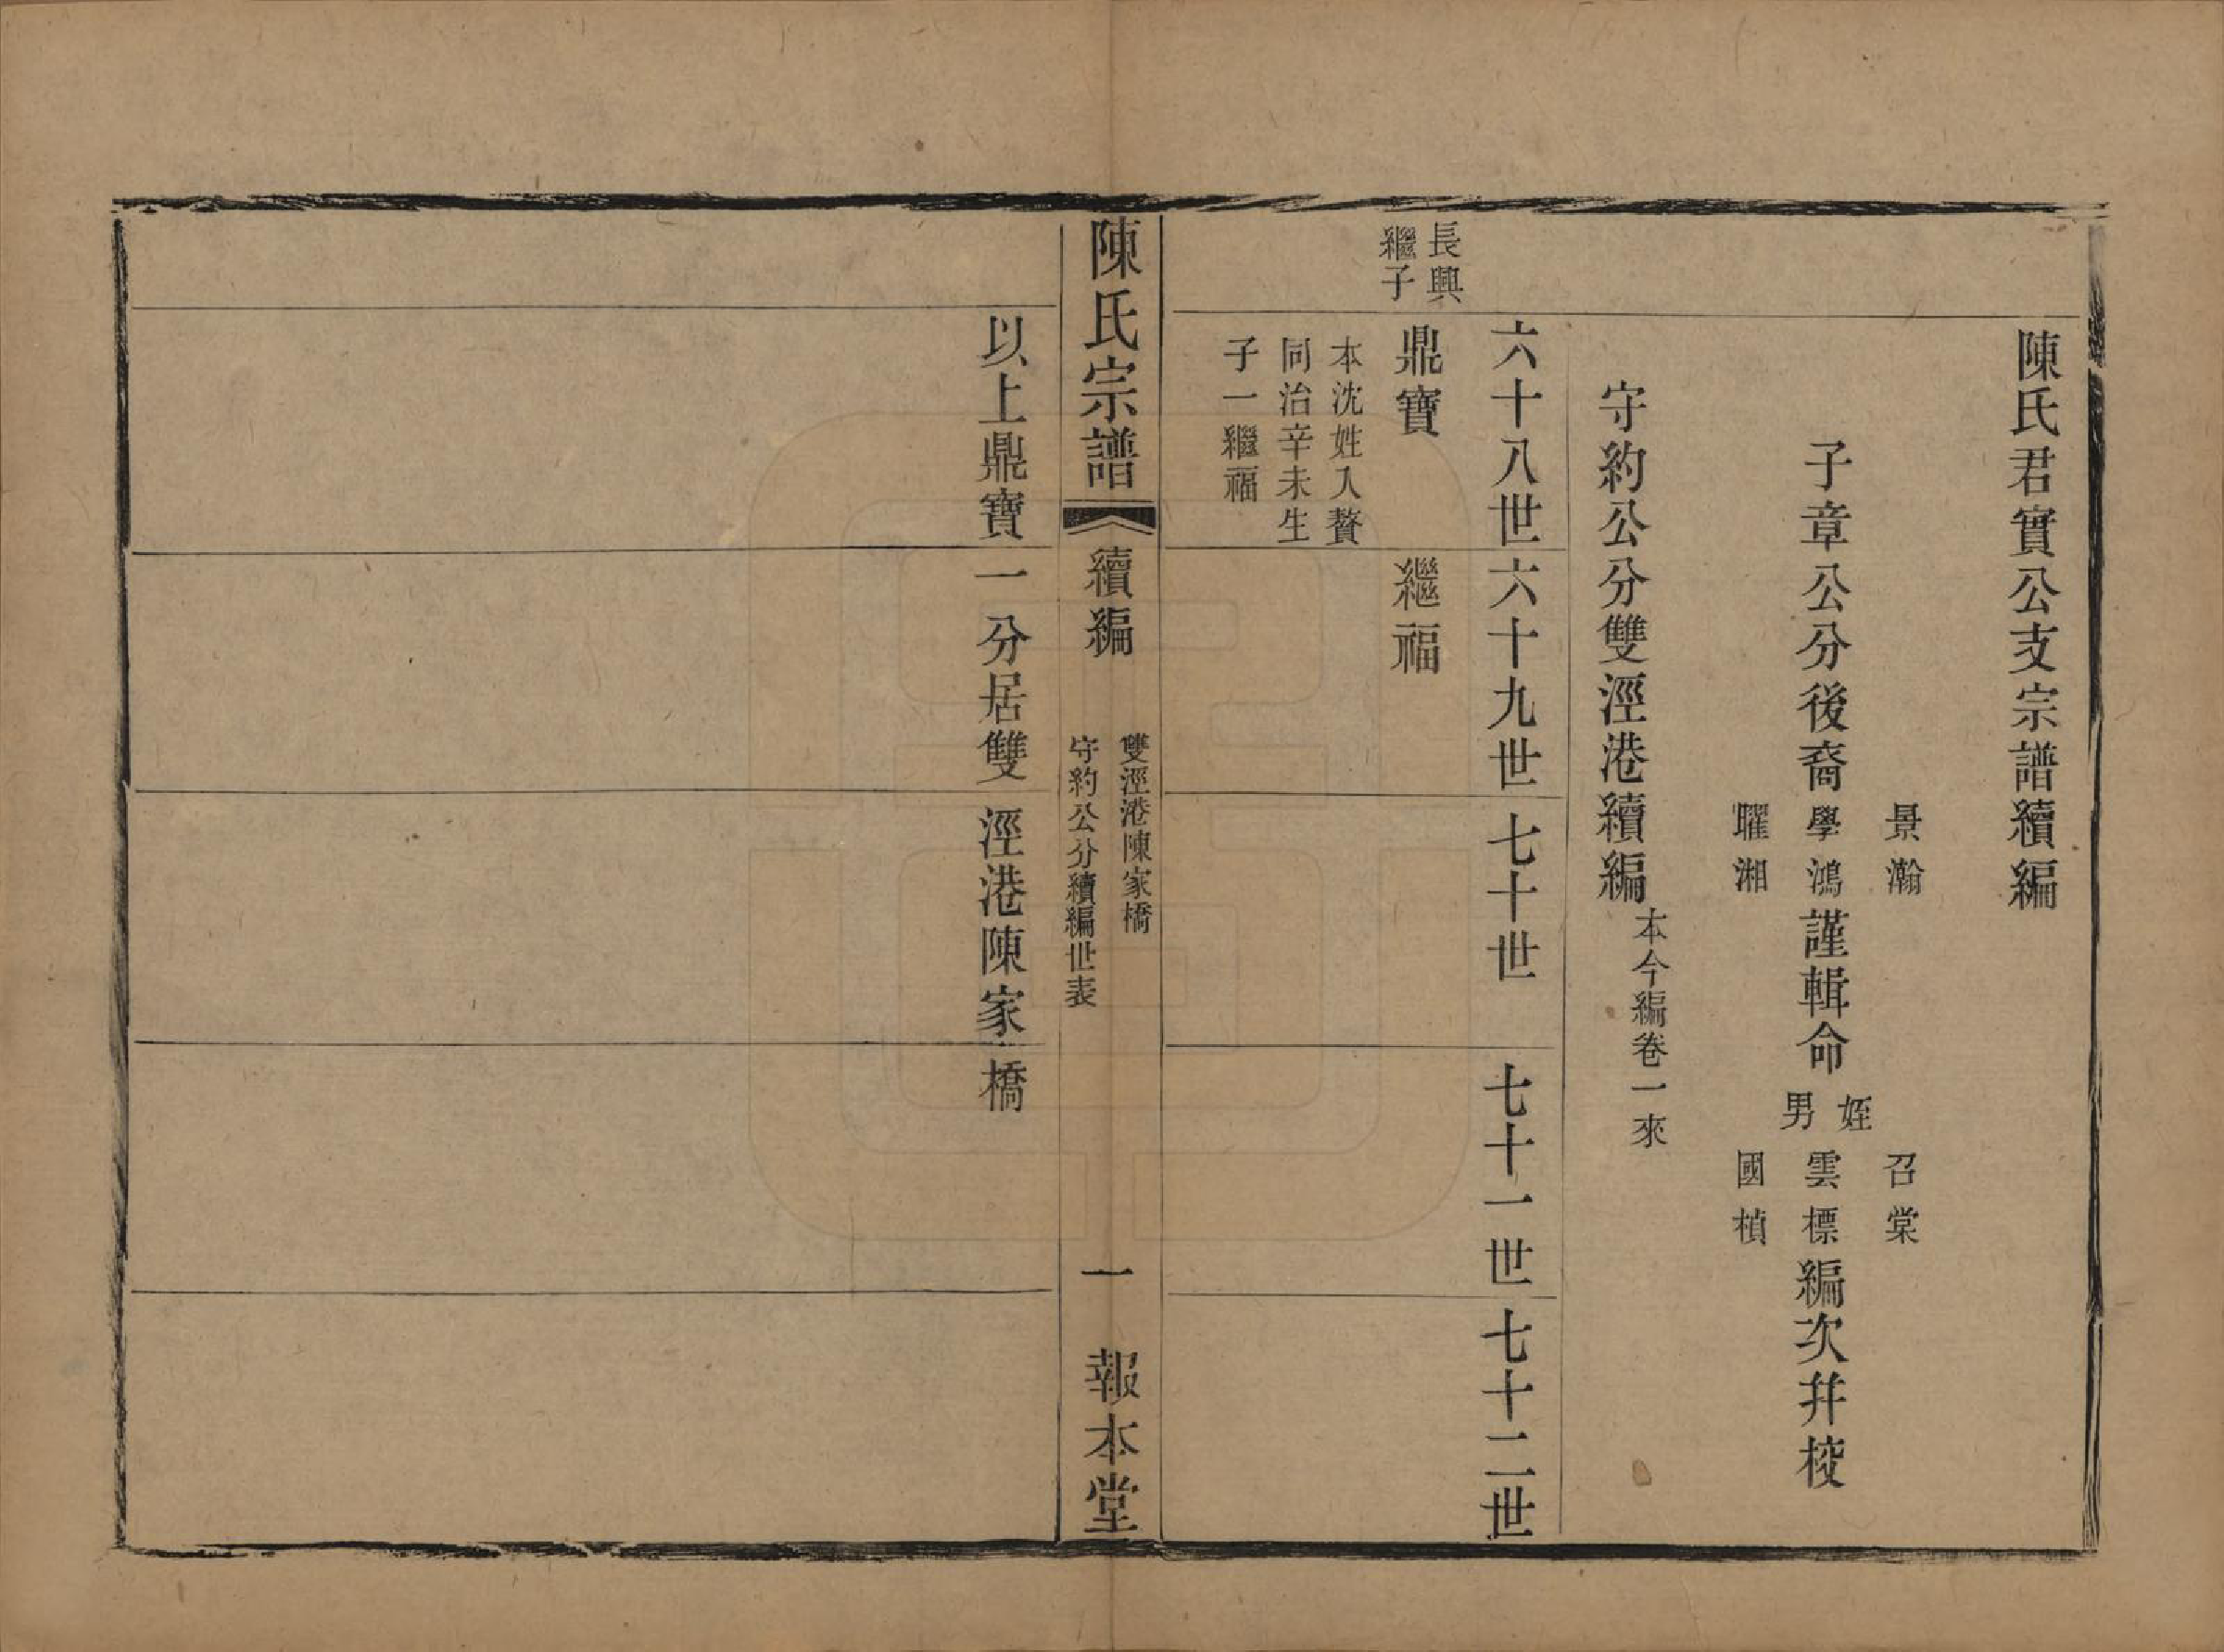 陳氏君實公支宗譜續編
子章公分後裔
景瀚
學鴻
耀湘
謹輯命
姪
男
召棠
雲標
國楨
編次幷校
守約公分雙涇港續編
本今編卷一來
六十八世
六十九世
七十世
七十一世
七十二世
長興
繼子
鼎寶
本沈姓入贅
同治辛未生
子一繼福
繼福
陳氏宗譜
續編
雙涇港陳家橋
守約公分續編世表
一
報本堂
以上鼎寶一分居雙涇港陳家橋